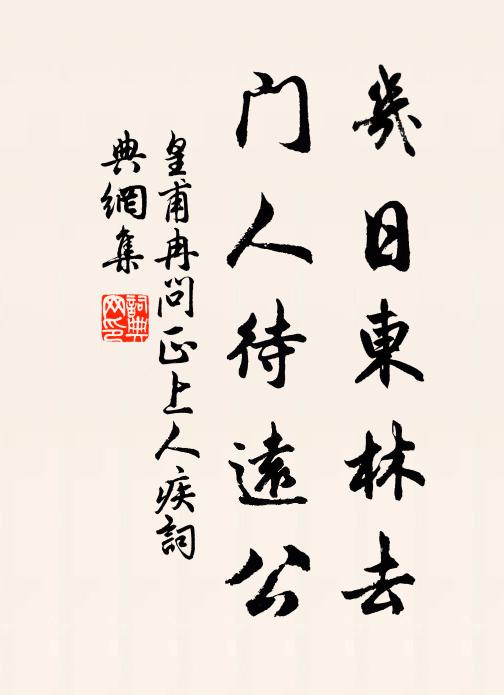 幾日東林去
門人待遠公
皇甫冉問正上人疾詞
典網集
詞典網印